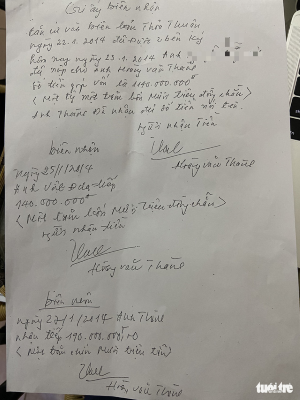 Giấy biên nhận
Căn cứ vào biên bản Thỏa Thuận
ngày 22.1.2014 đã được 2 bên ký
hôm nay ngày 23.1.2014 Anh
đã nộp cho anh Hoàng văn Thanh
Số tiền góp vốn là 1140.000.000đ
(Một tỷ một trăm bốn Mươi triệu đồng chẵn)
Anh Thanh đã nhận đủ số tiền nói trên.
người nhận Tiền
Hoàng văn Thanh
biên nhận
ngày 25/1/2014
Anh
140.000.000đ
(Một trăm bốn Mươi Triệu đồng chẵn)
người nhận tiền
Hoàng văn Thanh
biên nhận
ngày 27/1/2014 Anh Thanh
nhận tiếp 190.000.000
(Một trăm chín Mươi triệu
Hoàng văn Thanh
tuổi trẻ